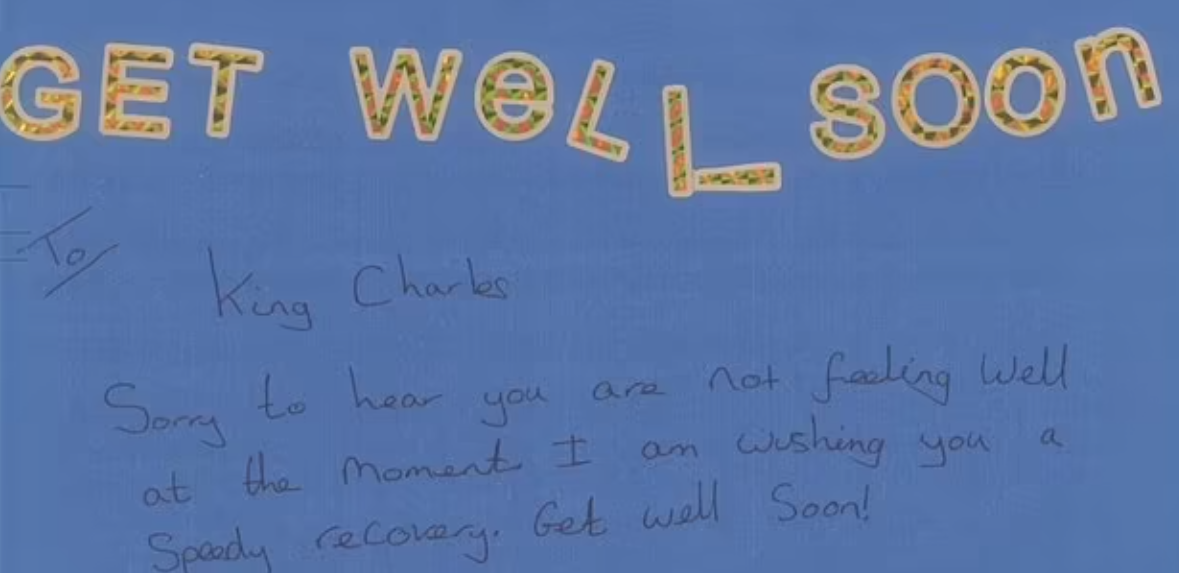 GET WeLL SOOn
To
King Charles
Sorry to hear you are not feeling well
at the moment I am wishing you a
Speedy recovery. Get well Soon!